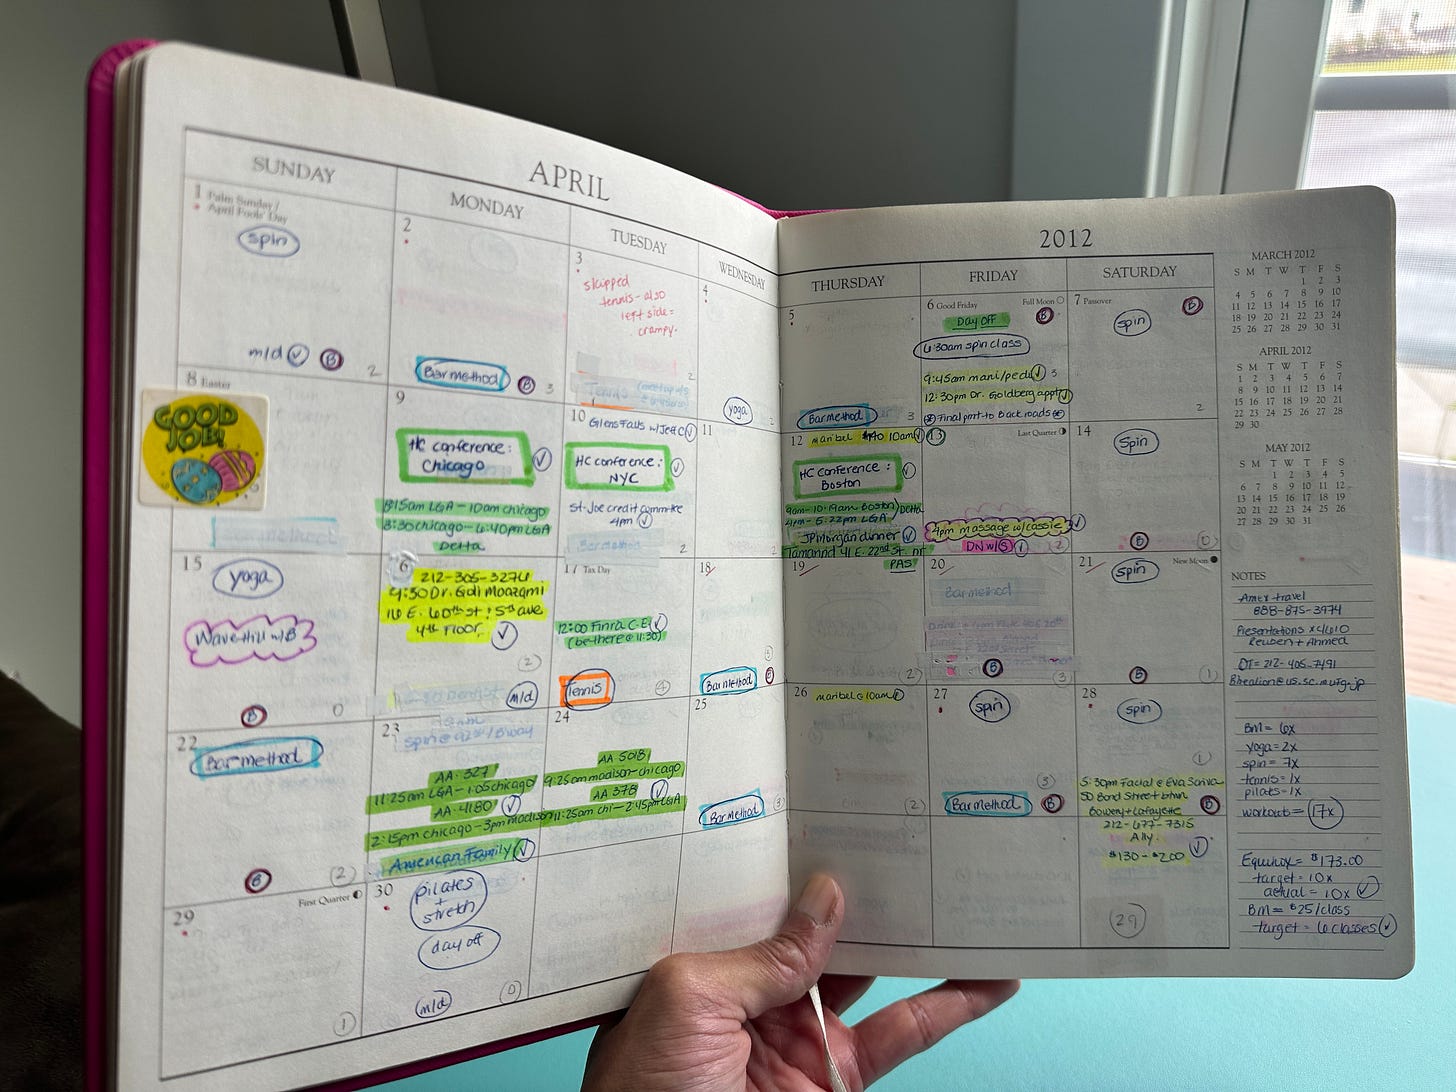 APRIL
SUNDAY
MONDAY
TUESDAY
WEDNESDAY
1 Palm Sunday/
April Fools' Day
spin
m/d
B
2
2
Bar method
B
3
3
skipped
tennis - also
left side =
crampy.
Tennis
2
4
yoga
2
8 Easter
GOOD
JOB!
9
HC conference:
Chicago
8:15am LGA - 10am chicago
3:30 chicago - 6:40pm LGA
Delta
10 Glens Falls w/Jeff C
HC conference:
NYC
St. Joe credit committee
4pm
Bar method
2
11
2
15
yoga
Wave Hill w/B
B
0
16
212-305-3276
9:30 Dr. Goli Moazami
16 E. 60th St; 5th ave
4th Floor.
2
m/d
17 Tax Day
12:00 Finra C.E.
(be there @ 11:30)
Tennis
4
18
3
Bar method
B
22
Bar method
B
2
23
spin @ 92nd/Bway
AA 327
11:25am LGA - 1:05 chicago
AA 4180
2:15pm chicago - 3pm madison
American Family
24
AA 5018
9:25am madison - chicago
AA 378
11:25am chi - 2:45pm LGA
25
Bar method
3
29
First Quarter
1
30
pilates
+
stretch
day off
m/d
0
2012
THURSDAY
FRIDAY
SATURDAY
5
Bar method
3
6 Good Friday
Full Moon
Day Off
B
6:30am spin class
9:45am mani/pedi
3
12:30pm Dr. Goldberg appt
Final pmt to Backroads
7 Passover
B
spin
2
12 maribel $140 10am
HC Conference:
Boston
9am - 10:19am Boston/Delta
4pm - 5:22pm LGA
JPMorgan dinner
Tamarind 41 E. 22nd St. nr
PAS
13
Last Quarter
4pm massage w/cassie
DN w/S
2
14
spin
B
0
19
2
20
Bar method
B
3
21
New Moon
spin
B
1
26
maribel @ 10am
2
27
spin
3
Bar method
B
28
spin
1
5:30pm Facial @ Eva Scrivo
50 Bond Street btwn
Bowery + Lafayette
B
212-677-7315
Ally
$130 - $200
29
MARCH 2012
S M T W T F S
1 2 3
4 5 6 7 8 9 10
11 12 13 14 15 16 17
18 19 20 21 22 23 24
25 26 27 28 29 30 31
APRIL 2012
S M T W T F S
1 2 3 4 5 6 7
8 9 10 11 12 13 14
15 16 17 18 19 20 21
22 23 24 25 26 27 28
29 30
MAY 2012
S M T W T F S
1 2 3 4 5
6 7 8 9 10 11 12
13 14 15 16 17 18 19
20 21 22 23 24 25 26
27 28 29 30 31
NOTES
Amex travel
888-875-3974
Presentations x4610
Reuben + Ahmed
DT = 212-405-7491
BM = 6x
yoga = 2x
spin = 7x
tennis = 1x
pilates = 1x
workout = 17x
Equinox = $173.00
target = 10x
actual = 10x
BM = $25/class
target = 6 classes